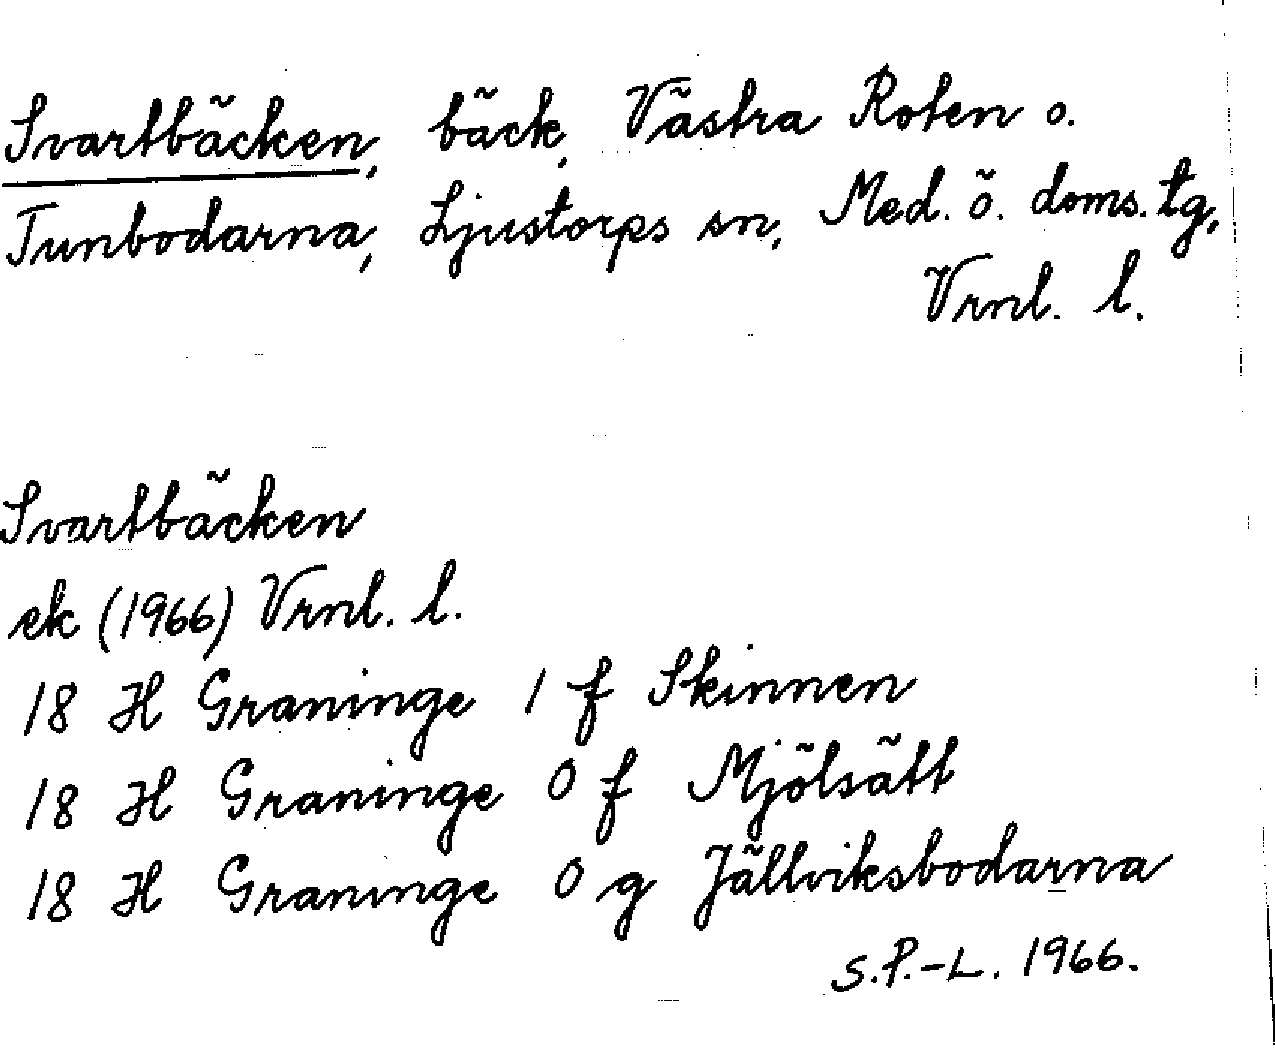 Svartbäcken, bäck, Västra Roten o.
Tunbodarna, Ljustorps sn, Med. ö. doms. tg,
Vrnl. l.
Svartbäcken
ek (1966) Vrnl. l.
18 H Graninge 1 f Skinnen
18 H Graninge 0 f Mjölsätt
18 H Graninge 0 g Jällviksbodarna
S.P.-L. 1966.